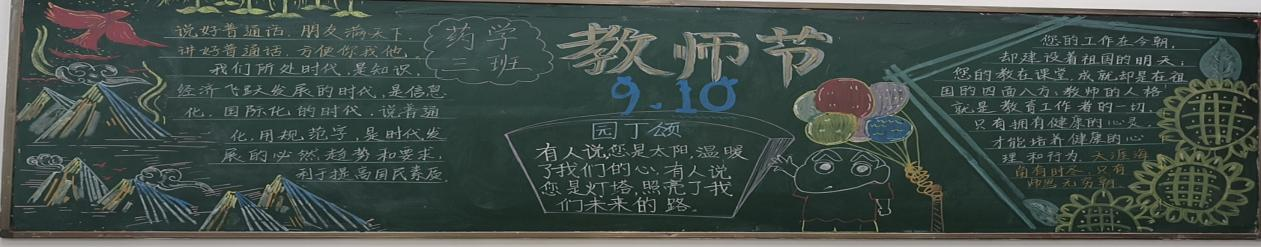 说好普通话，朋友满天下，
讲好普通话，方便你我他，
我们所处时代，是知识，
经济飞跃大发展的时代，是信息
化，国际化的时代，说普通
化，用规范字，是时代发
展的必然趋势和要求，
利于提高国民素质，
药学
三班
教师节
9.10
园丁颂
有人说，您是太阳，温暖
了我们的心，有人说
您是灯塔，照亮了我
们未来的路。
您的工作在今朝，
却建设着祖国的明天；
您的教在课堂，成就却是在祖
国的四面八方，教师的人格
就是教育工作者的一切，
只有拥有健康的心灵，
才能培养健康的心
理和行为，大海
角有时尽，只有
师恩无穷期